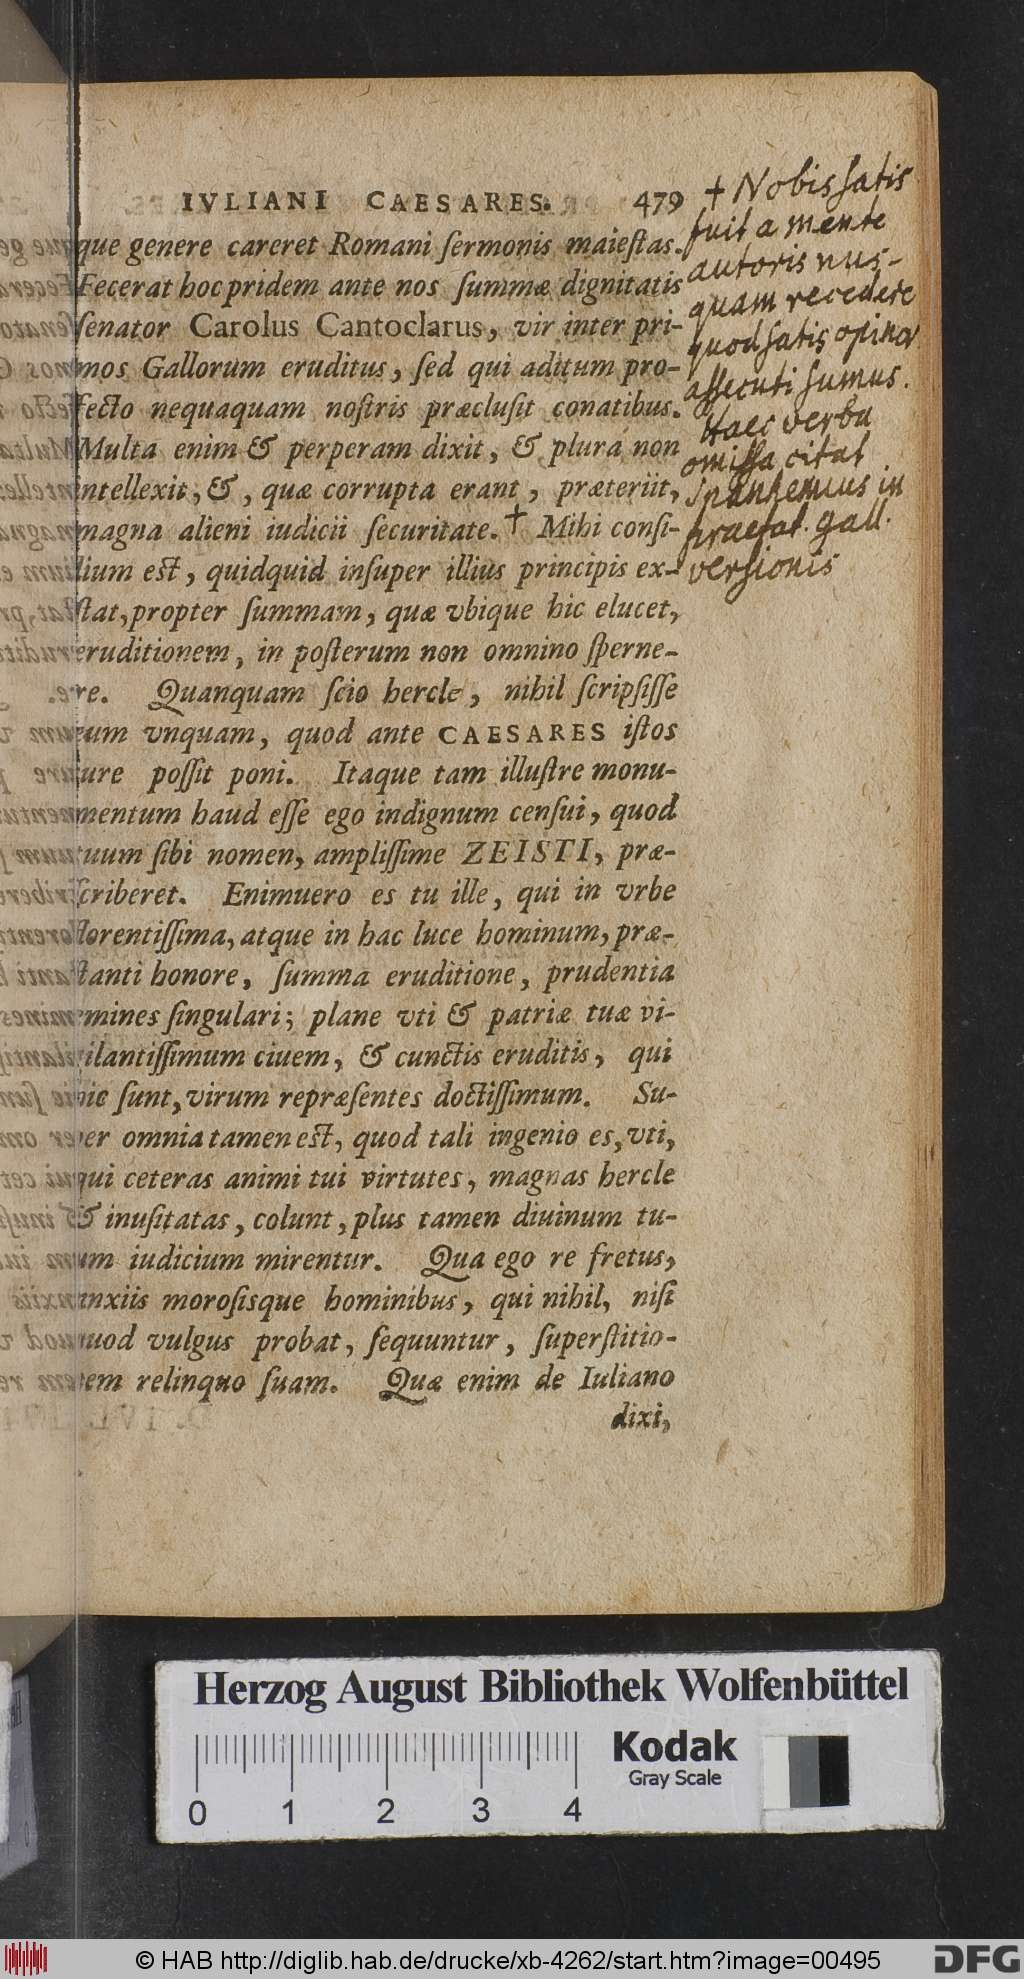 IVLIANI CAESARES. 479
que genere careret Romani ſermonis maieſtas.
Fecerat hoc pridem ante nos ſummæ dignitatis
ſenator Carolus Cantoclarus, vir inter pri-
mos Gallorum eruditus, ſed qui aditum pro-
fecto nequaquam noſtris præcluſit conatibus.
Multa enim & perperam dixit, & plura non
intellexit, &, quæ corrupta erant, præteriit,
magna alieni iudicii ſecuritate. † Mihi conſi-
lium est, quidquid inſuper illius principis ex-
ſtat, propter ſummam, quæ vbique hic elucet,
eruditionem, in poſterum non omnino ſperne-
re. Quanquam ſcio hercle, nihil ſcripſiſſe
eum vnquam, quod ante CAESARES iſtos
iure poſſit poni. Itaque tam illuſtre monu-
mentum haud eſſe ego indignum cenſui, quod
tuum ſibi nomen, ampliſſime ZEISTI, præ-
ſcriberet. Enimuero es tu ille, qui in vrbe
florentiſſima, atque in hac luce hominum, præ-
ſtanti honore, ſumma eruditione, prudentia
mines ſingulari; plane vti & patriæ tuæ vi-
gilantiſſimum ciuem, & cunctis eruditis, qui
hic ſunt, virum repræſentes doctiſſimum. Su-
per omnia tamen est, quod tali ingenio es, vti,
qui ceteras animi tui virtutes, magnas hercle
& inuſitatas, colunt, plus tamen diuinum tu-
um iudicium mirentur. Qua ego re fretus,
anxiis moroſisque hominibus, qui nihil, niſi
quod vulgus probat, ſequuntur, ſuperſtitio-
nem relinquo ſuam. Quæ enim de Iuliano
dixi,
† Nobis ſatis
fuit a mente
autoris nus-
quam recedere
quod ſatis opinor
aſſecuti ſumus.
Haec verba
omiſſa citat
Spanhemius in
praefat. gall.
verſionis
Herzog August Bibliothek Wolfenbüttel
Kodak
Gray Scale
0 1 2 3 4
© HAB http://diglib.hab.de/drucke/xb-4262/start.htm?image=00495
DFG